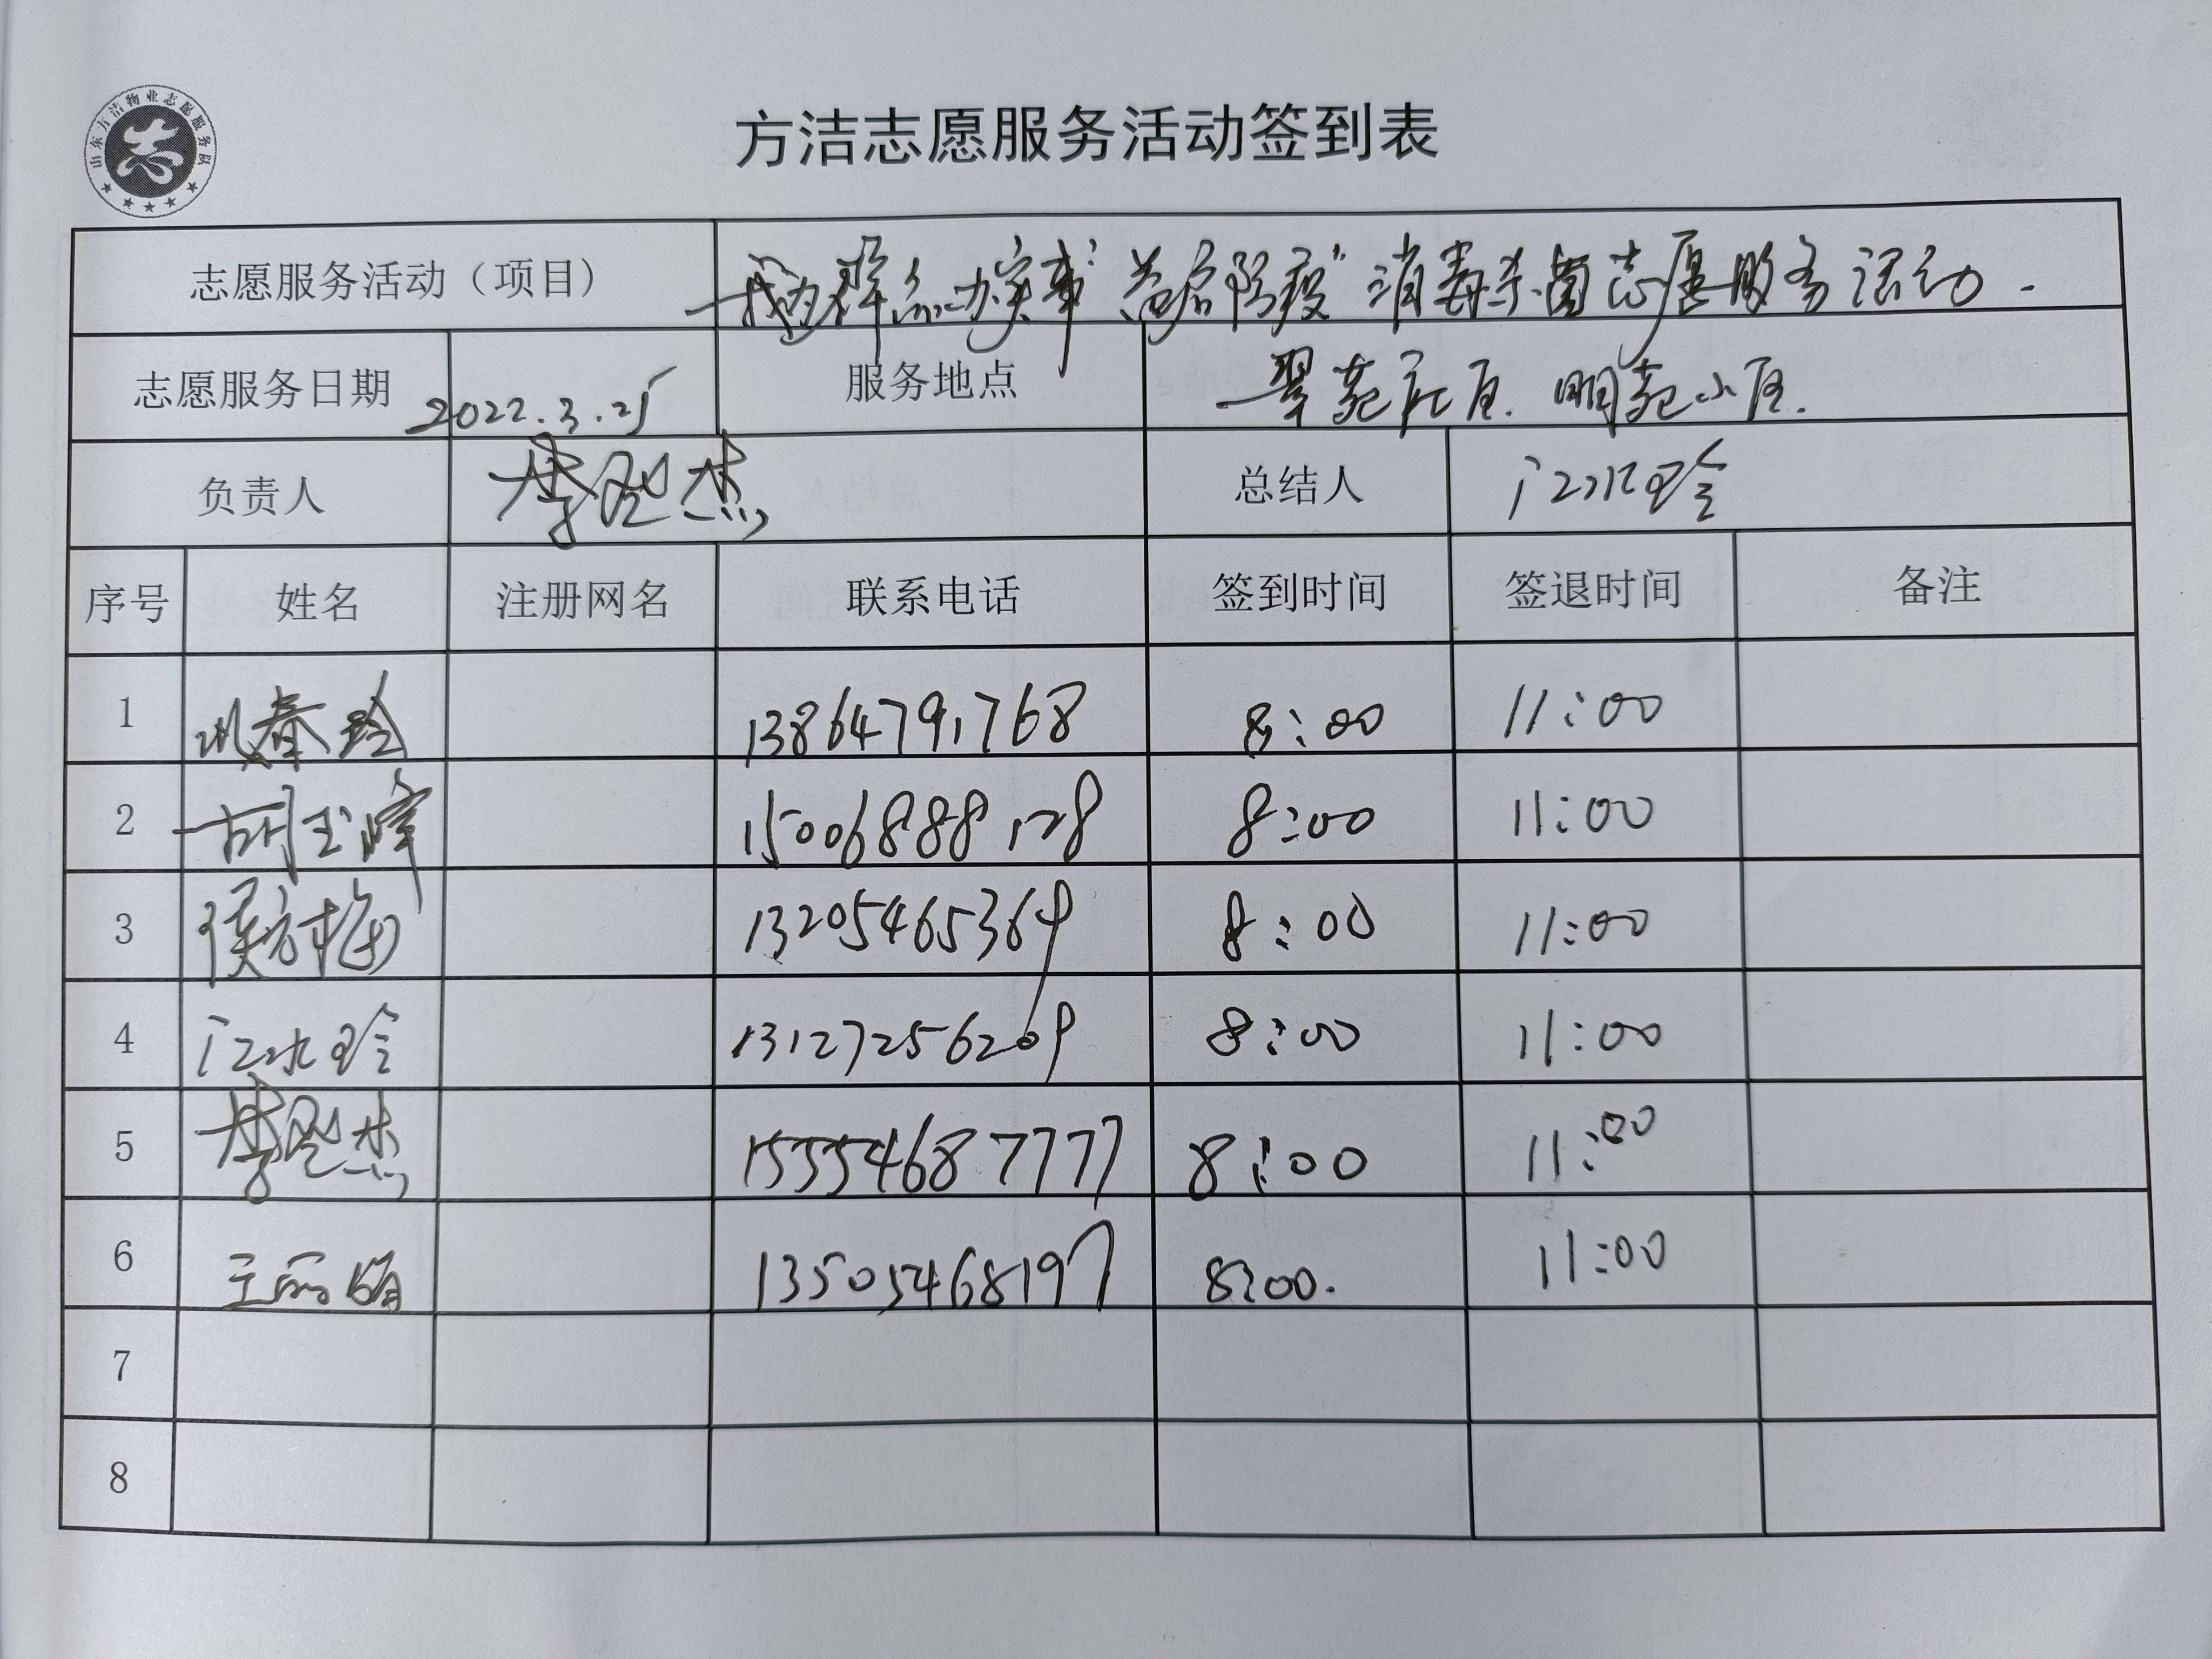 山东方洁物业志愿服务队
志
方洁志愿服务活动签到表
志愿服务活动（项目） 我为群众办实事"益启防疫"消毒杀菌志愿服务活动.
志愿服务日期 2022.3.25 服务地点 翠苑社区. 明苑小区.
负责人 李 杰 总结人 江冰玲
序号 姓名 注册网名 联系电话 签到时间 签退时间 备注
1 春玲 13864791768 8:00 11:00
2 胡玉峰 15006888128 8:00 11:00
3 侯方梅 13205465369 8:00 11:00
4 江冰玲 13127256209 8:00 11:00
5 李 杰 15554687777 8:00 11:00
6 王丽娟 13505468197 8:00. 11:00
7
8